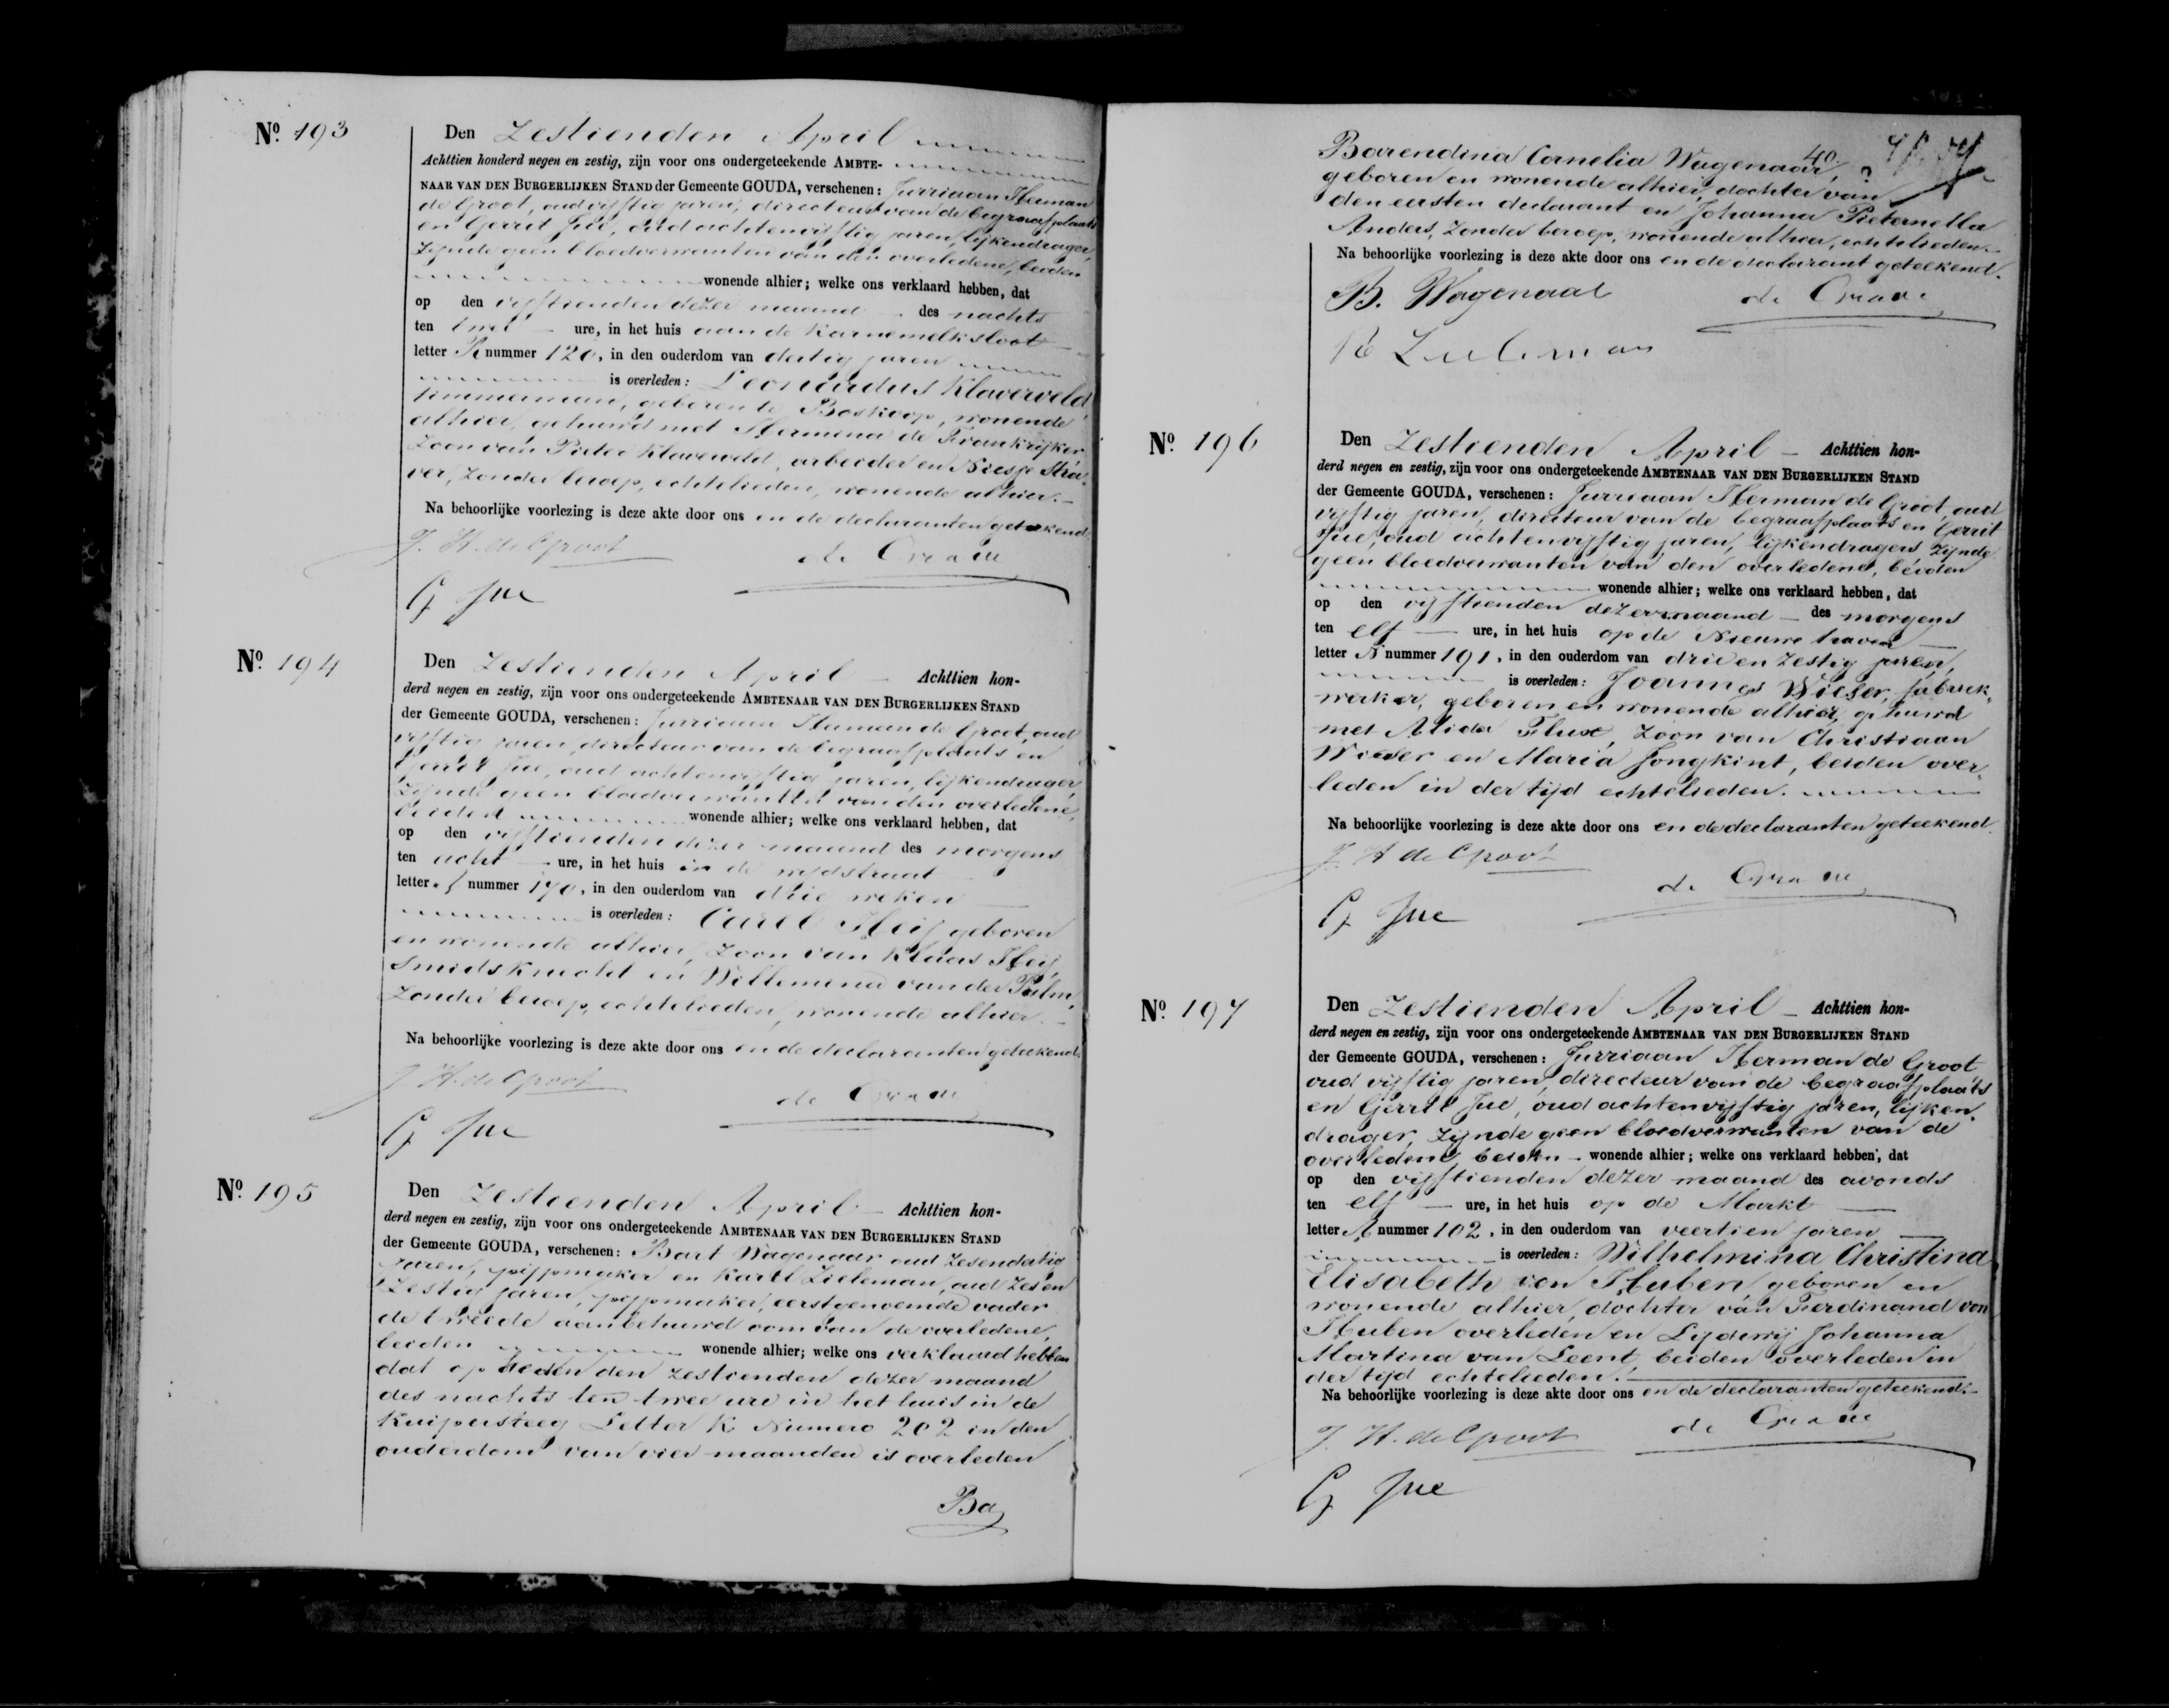 Nº 193
Den Zestienden April
Achttien honderd negen en zestig, zijn voor ons ondergeteekende AMBTE-
NAAR VAN DEN BURGERLIJKEN STAND der Gemeente GOUDA, verschenen: Jurriaan Herman
de Groot, oud vijftig jaren, directeur van de begraafplaats
en Gerrit Jue, oud achtenvijftig jaren, lijkendrager,
zijnde geen bloedverwanten van den overledene, beiden
wonende alhier; welke ons verklaard hebben, dat
op den vijftienden dezer maand des nachts
ten twee ure, in het huis aan de Karnemelksloot
letter R nummer 120, in den ouderdom van dertig jaren
is overleden: Leonardus Klaverveld
timmerman, geboren te Boskoop, wonende
alhier, gehuwd met Hermina de Frankrijker
Zoon van Pieter Klaverveld, arbeider en Niesje Stra-
ver, zonder beroep, echtelieden, wonende alhier.
Na behoorlijke voorlezing is deze akte door ons en de declaranten geteekend.
J. H. de Groot
G Jue
Nº 194
Den Zestienden April Achttien hon-
derd negen en zestig, zijn voor ons ondergeteekende AMBTENAAR VAN DEN BURGERLIJKEN STAND
der Gemeente GOUDA, verschenen: Jurriaan Herman de Groot, oud
vijftig jaren, directeur van de begraafplaats en
Gerrit Jue, oud achtenvijftig jaren, lijkendrager,
zijnde geen bloedverwanten van den overledene,
beiden wonende alhier; welke ons verklaard hebben, dat
op den vijftienden dezer maand des morgens
ten acht ure, in het huis in de
letter nummer 170, in den ouderdom van drie weken
is overleden: Carel Heij geboren
en wonende alhier, zoon van Klaas Heij,
Smidsknecht en Willemina van der Palm,
zonder beroep, echtelieden, wonende alhier.
Na behoorlijke voorlezing is deze akte door ons en de declaranten geteekend.
J H. de Groot
G Jue
Nº 195
Den Zestienden April Achttien hon-
derd negen en zestig, zijn voor ons ondergeteekende AMBTENAAR VAN DEN BURGERLIJKEN STAND
der Gemeente GOUDA, verschenen: Bart Wagenaar oud zesendertig
jaren, pijpmaker en Karel Zieleman, oud zes en
zestig jaren, pijpmaker, eerstgenoemde vader
de tweede aanbehuwd oom van de overledene,
beiden wonende alhier; welke ons verklaard hebben
dat op heden den zestienden dezer maand
des nachts ten twee ure in het huis in de
Kuipersteeg Letter K Numero 202 in den
ouderdom van vier maanden is overleden
Ba
40.
Barendina Cornelia Wagenaar,
geboren en wonende alhier, dochter van
den eersten declarant en Johanna Pieternella
Anders, zonder beroep, wonende alhier, echtelieden.
Na behoorlijke voorlezing is deze akte door ons en de declarant geteekend.
B. Wagenaar
Nº 196
Den Zestienden April Achttien hon-
derd negen en zestig, zijn voor ons ondergeteekende AMBTENAAR VAN DEN BURGERLIJKEN STAND
der Gemeente GOUDA, verschenen: Jurriaan Herman de Groot, oud
vijftig jaren, directeur van de begraafplaats en Gerrit
Jue, oud achtenvijftig jaren, lijkendragers, zijnde
geen bloedverwanten van den overledene, beiden
wonende alhier; welke ons verklaard hebben, dat
op den vijftienden dezer maand des morgens
ten elf ure, in het huis op de Nieuwe haven
letter N nummer 191, in den ouderdom van drie en zestig jaren,
is overleden: Joannes Wieser, fabriek-
werker, geboren en wonende alhier, gehuwd
met Alida Fluxe, Zoon van Christiaan
Wieser en Maria Jongkint, beiden over-
leden in der tijd echtelieden.
Na behoorlijke voorlezing is deze akte door ons en de declaranten geteekend.
J. H de Groot
G Jue
Nº 197
Den Zestienden April Achttien hon-
derd negen en zestig, zijn voor ons ondergeteekende AMBTENAAR VAN DEN BURGERLIJKEN STAND
der Gemeente GOUDA, verschenen: Jurriaan Herman de Groot
oud vijftig jaren, directeur van de begraafplaats
en Gerrit Jue, oud achtenvijftig jaren, lijken-
drager, zijnde geen bloedverwanten van de
overledene beiden wonende alhier; welke ons verklaard hebben, dat
op den vijftienden dezer maand des avonds
ten elf ure, in het huis op de Markt
letter A nummer 102, in den ouderdom van veertien jaren
is overleden: Wilhelmina Christina
Elisabeth von Huben geboren en
wonende alhier, dochter van Ferdinand von
Huben overleden en Lijdewij Johanna
Martina van Leent, beiden overleden in
der tijd echtelieden.
Na behoorlijke voorlezing is deze akte door ons en de declaranten geteekend.
J. H. de Groot
G Jue